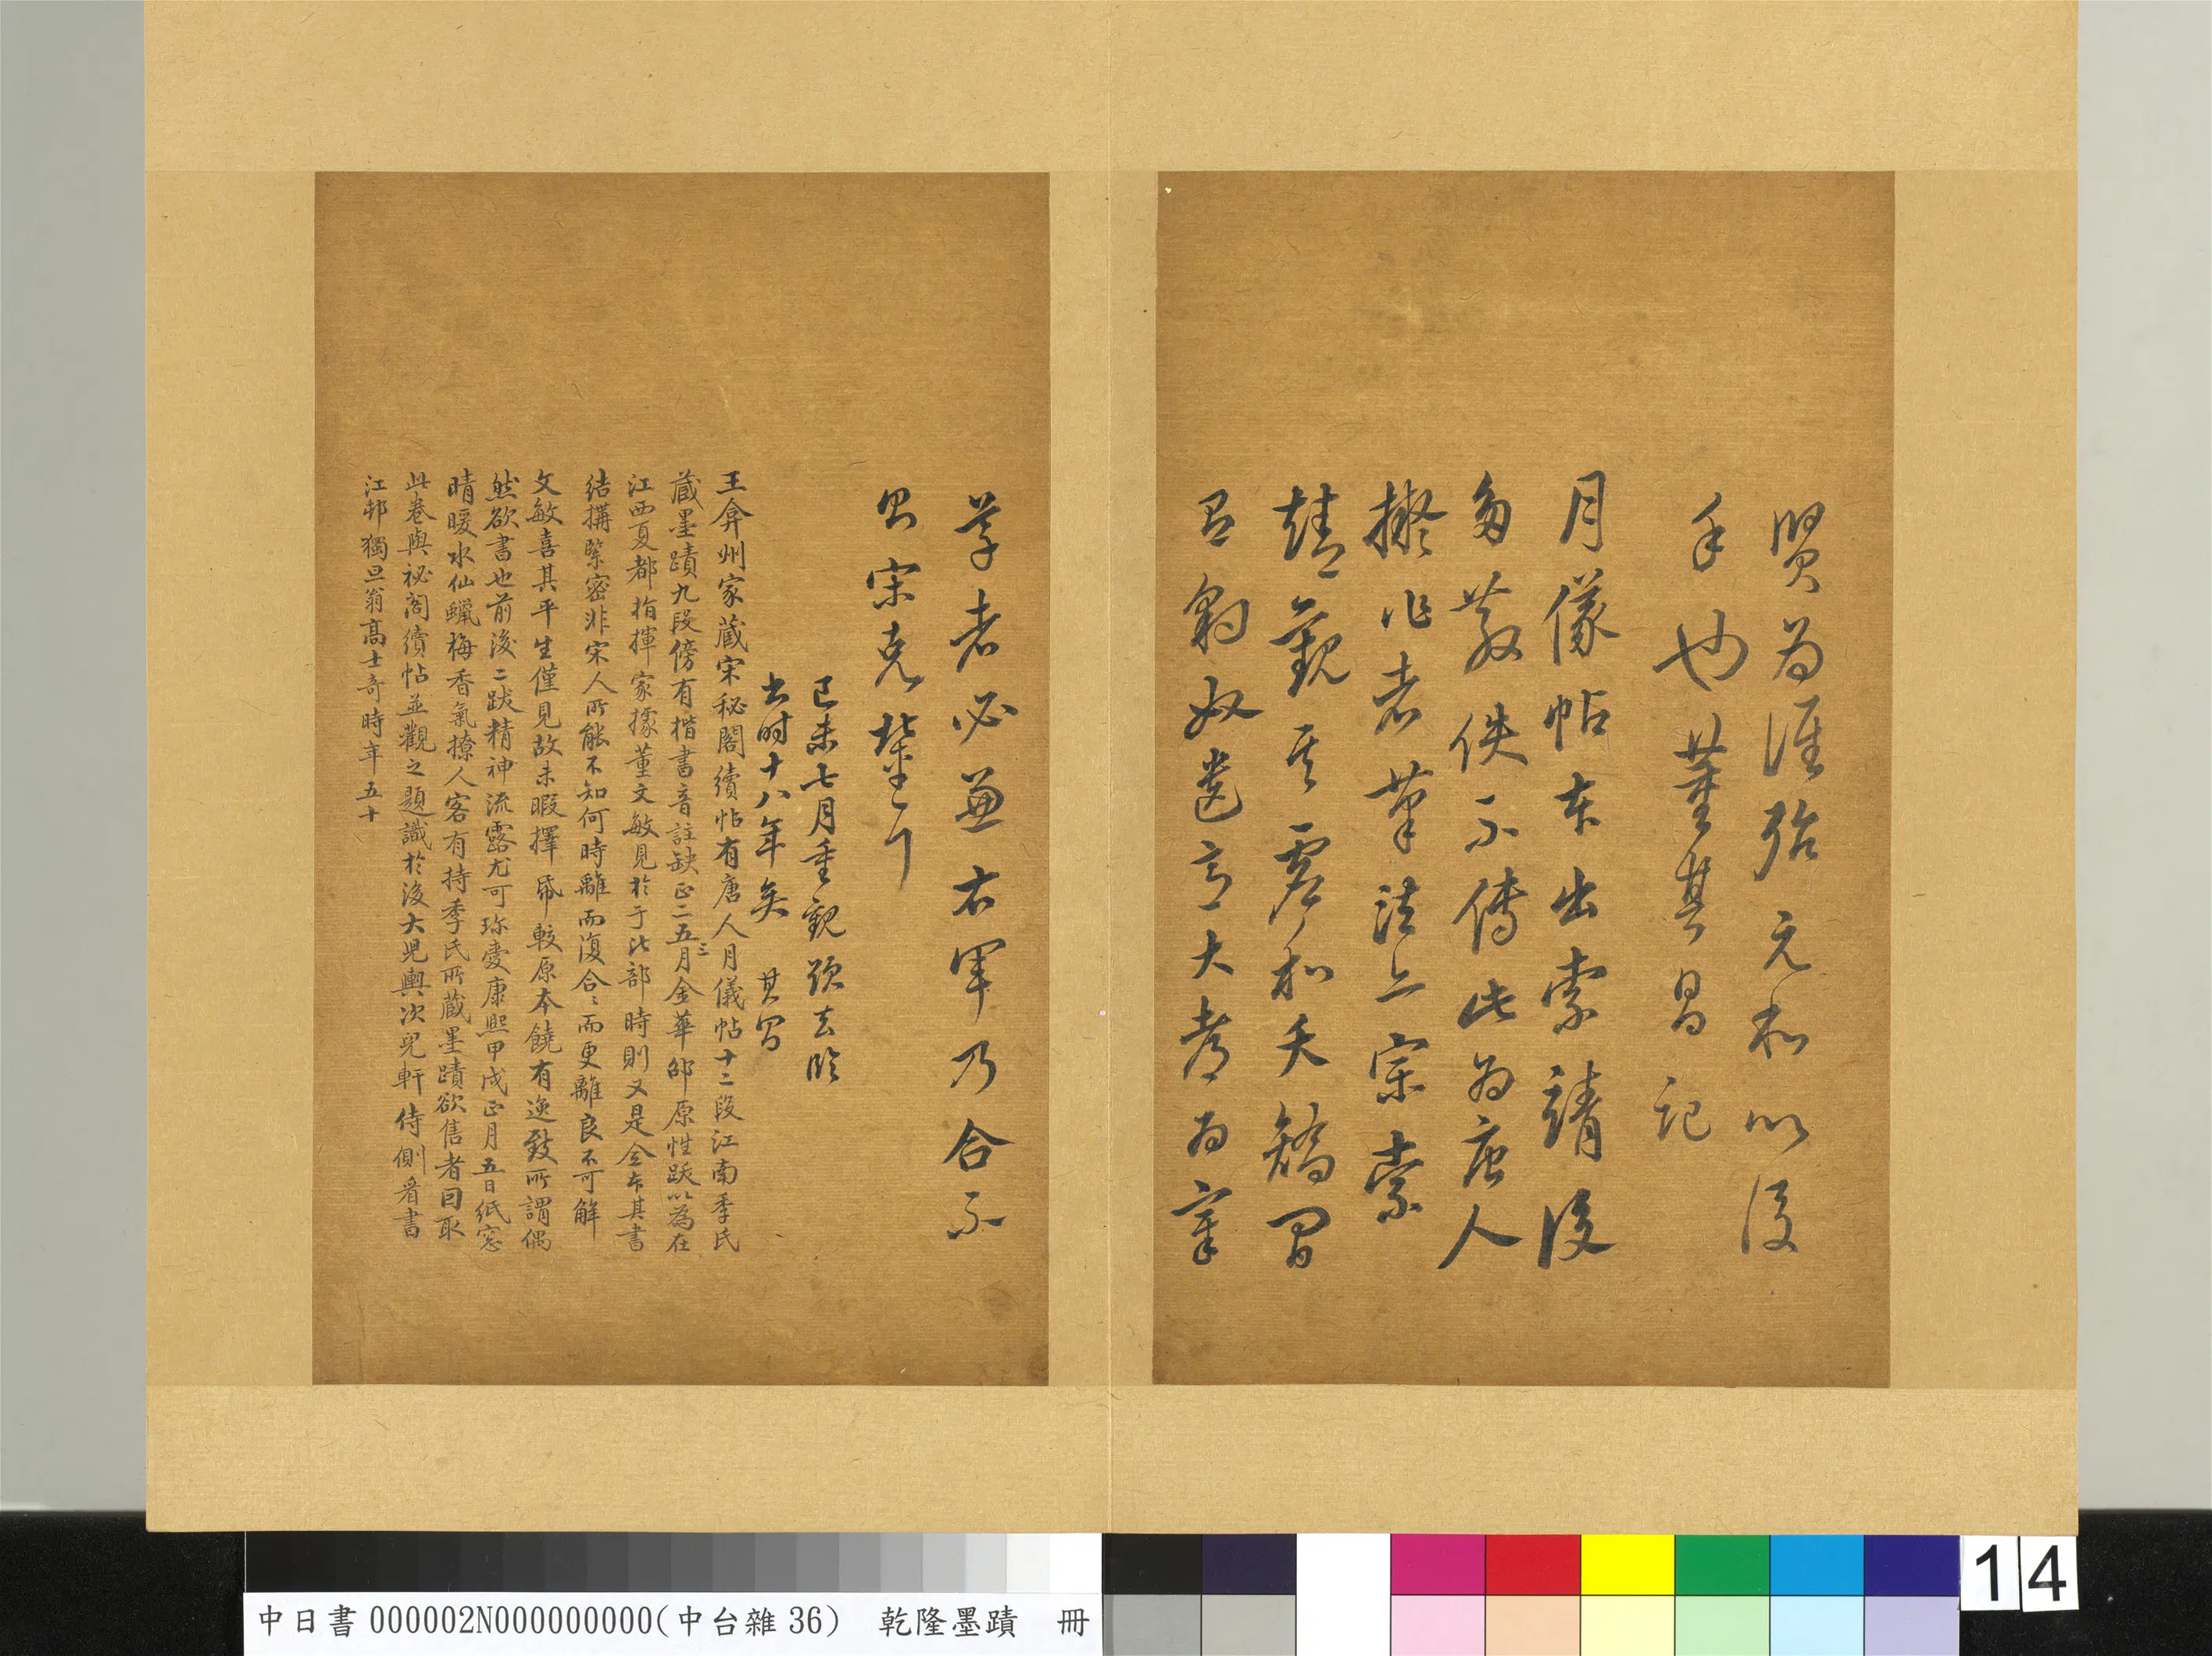 賢為涯殆元和以後
手也董其昌記
月儀帖本出索靖後
多散佚不傳此為唐人
擬作者筆法亦宗索
靖觀其
右軍乃合不
學者必兼右軍乃合不
宋克輩
己未七月重觀跋去臨
書時十八年矣 其昌
王弇州家藏宋秘閣續帖有唐人月儀帖十二段江南季氏
藏墨蹟九段傍有楷書音註缺正二三五月金華邵原性跋以為在
江西夏都指揮家據董文敏見於于比部時則又是全本其書
結搆緊密非宋人所能不知何時離而復合合而更離良不可解
文敏喜其平生僅見故未暇擇帋較原本饒有逸致所謂偶
然欲書也前後二跋精神流露尤可珍愛康熙甲戌正月五日紙窓
晴暖水仙蠟梅香氣撩人客有持季氏所藏墨蹟欲售者因取
此卷與祕閣續帖並觀之題識於後大兒輿次兒軒侍側看書
江邨獨旦翁高士奇時年五十
中日書000002N000000000(中台雜36) 乾隆墨蹟 冊
14